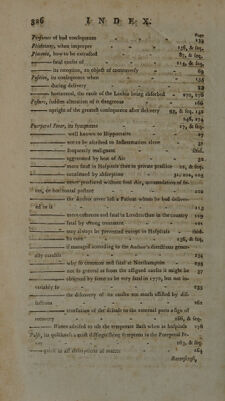 326 INDEX.
Page
Perfumes of bad consequence - 179
Phlebotomy, when improper - 156, & seq.
Placenta, how to be extracted - 87, & seq.
fatal excess of - 119, & seq.
its retention, an object of controversy - 69
Position, its consequence when - 135
during delivery - 29
horizontal, the cause of the Lochia being absorbed - 270, 176
Posture, sudden alteration of it dangerous - 166
upright of the greatest consequence after delivery 93, & seq. 132
148, 174
Puerperal Fever, its symptoms - 17, & seq.
well known to Hippocrates - 27
not to be ascribed to Inflammation alone - 31
frequently malignant - ibid.
aggravated by heat of Air - 32
more fatal in Hospitals than in private practice 22, & seq.
occasioned by absorption - 31, 202, 203
never produced without foul Air, accumulation of fæ-
ces, or horizontal posture - 202
the Author never left a Patient whom he had deliver-
ed or is - 213
more common and fatal in London than in the country 126
fatal by wrong treatment - 221
may always be prevented except in Hospitals - ibid.
its cure - 136, & seq.
if managed according to the Author's directions gener-
ally curable - 235
why so common and fatal at Northampton - 235
not so general as from the assigned causes it might be 37
observed by some to be very fatal in 1770, but not in-
variably so - 235
the discovery of its causes not much assisted by dis-
sections - 261
translation of the disease to the external parts a sign of
recovery - 266, & seq.
Hints advised to rob the symptoms Bath when at hospitals 276
Pulse, its quickness a most distinguishing symptom in the Puerperal Fe-
ver - 163, & seq.
quick in all absorptions of matter - 164
Recovery,